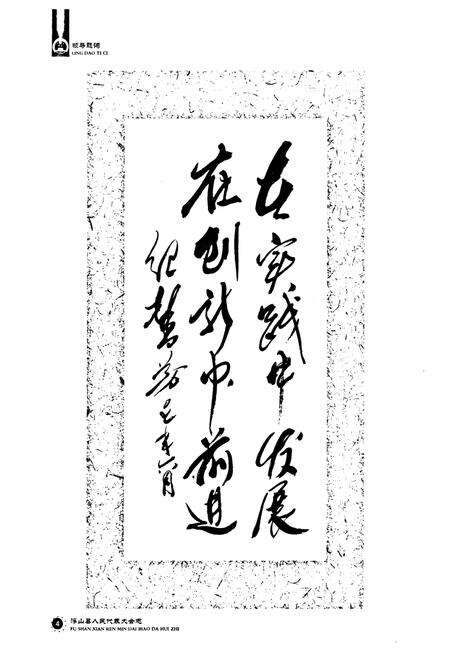 领导题词
LING DAO TI CI
在实践中发展
在创新中前进
纪馨芳 年六月
4
浮山县人民代表大会志
FU SHAN XIAN REN MIN DAI BIAO DA HUI ZHI